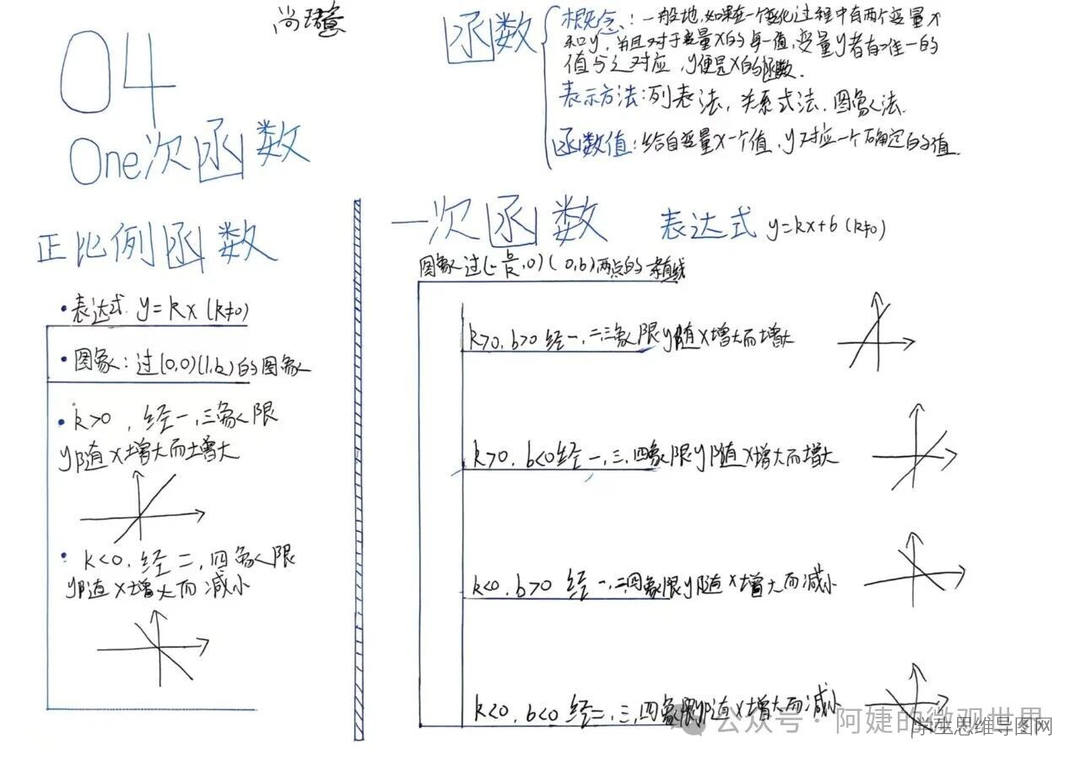 尚
04
One次函数
函数
概念:一般地,如果在一个变化过程中有两个变量x
和y,并且对于变量x的每一值,变量y者有唯一的
值与之对应,y便是x的函数.
表示方法:列表法,关系式法.图象法.
函数值:给自变量x一个值,y对应一个确定的值.
正比例函数
•表达式 y=kx (k≠0)
•图象:过(0,0)(1,k)的图象
•k>0,经一,三象限
y随x增大而增大
•k<0.经二,四象限
y随x增大而减小
一次函数 表达式 y=kx+b (k≠0)
图象过(-b/k,0)(0,b)两点的直线
k>0,b>0 经一,二三象限y随x增大而增大
k>0,b<0经一,三,四象限y随x增大而增大
k<0,b>0 经一,二四象限y随x增大而减小
k<0,b<0 经二,三,四象限y随x增大而减小
公众号·阿婕的微观世界
学生思维导图网